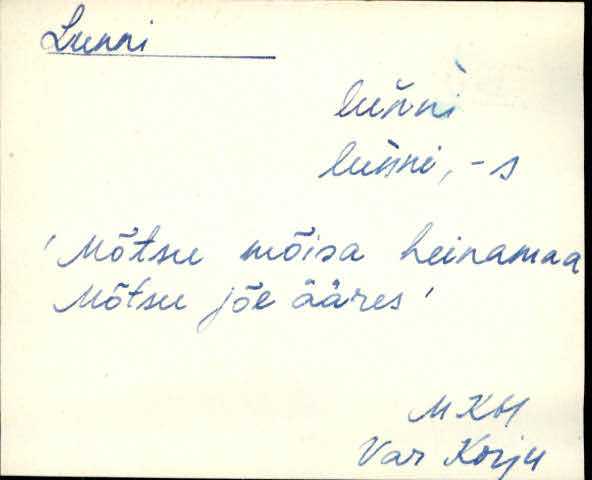 Lunni
luńni`
luńni, -s
'Mõtsu mõisa heinamaa
Mõtsu jõe ääres'
MKH
Var Korju